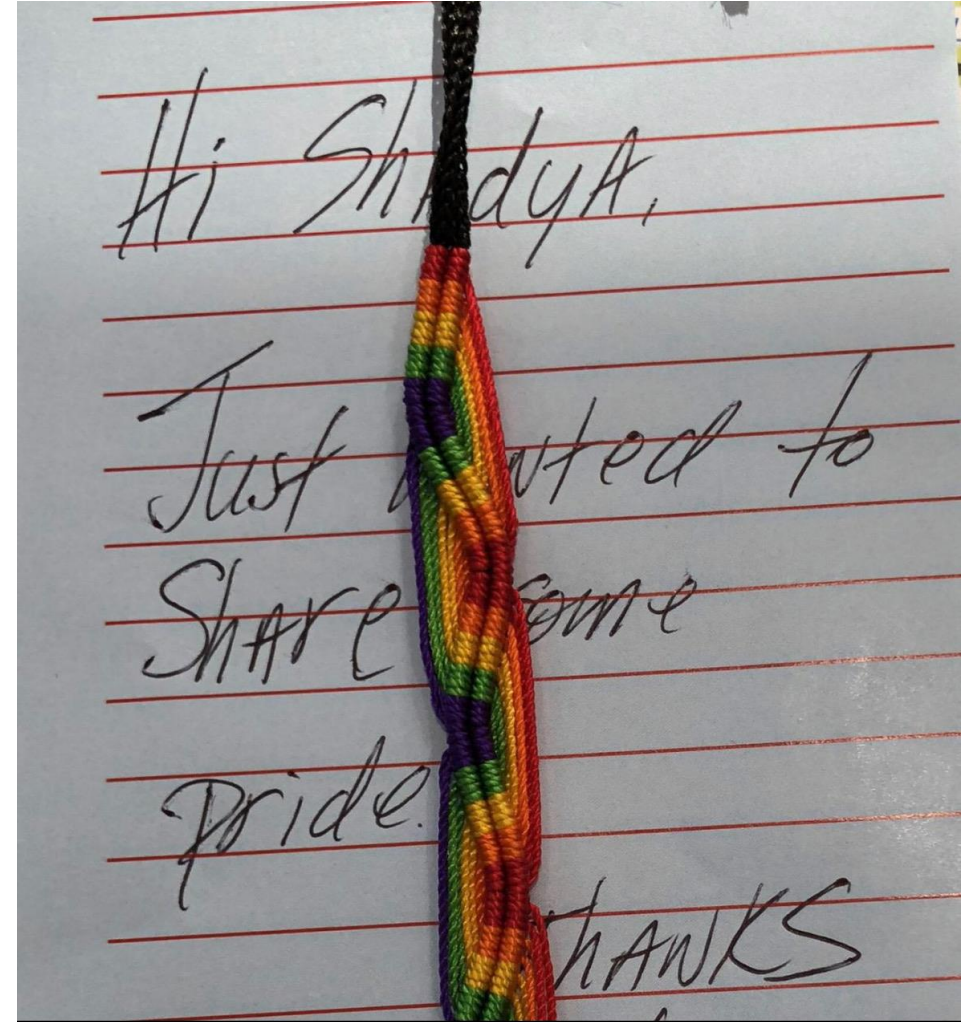 Hi ShAdyA,
Just to
ShAre some
pride.
THANKS